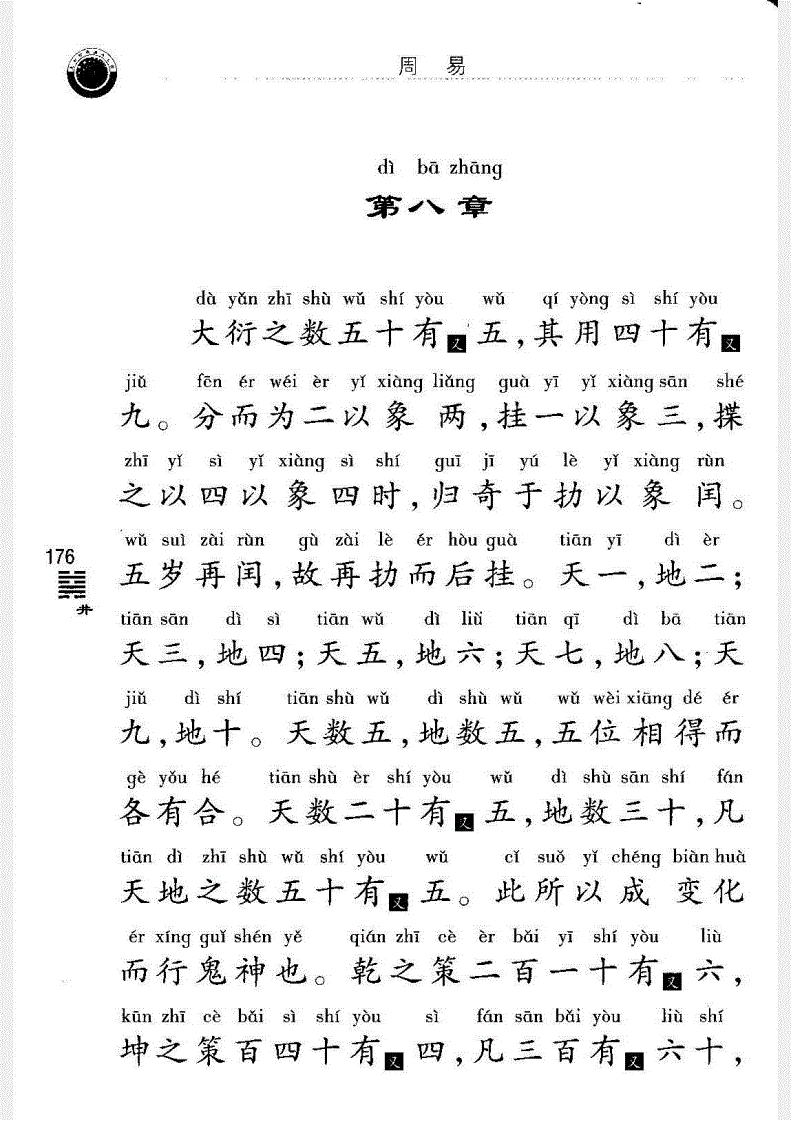 周 易
dì bā zhāng
第八章
dà yǎn zhī shù wǔ shí yòu wǔ qí yòng sì shí yòu
大衍之数五十有又五,其用四十有又
jiǔ fēn ér wéi èr yǐ xiàng liǎng guà yī yǐ xiàng sān shé
九。分而为二以象两,挂一以象三,揲
zhī yǐ sì yǐ xiàng sì shí guī jī yú lè yǐ xiàng rùn
之以四以象四时,归奇于扐以象闰。
wǔ suì zài rùn gù zài lè ér hòu guà tiān yī dì èr
五岁再闰,故再扐而后挂。天一,地二;
176
井
tiān sān dì sì tiān wǔ dì liù tiān qī dì bā tiān
天三,地四;天五,地六;天七,地八;天
jiǔ dì shí tiān shù wǔ dì shù wǔ wǔ wèi xiāng dé ér
九,地十。天数五,地数五,五位相得而
gè yǒu hé tiān shù èr shí yòu wǔ dì shù sān shí fán
各有合。天数二十有又五,地数三十,凡
tiān dì zhī shù wǔ shí yòu wǔ cǐ suǒ yǐ chéng biàn huà
天地之数五十有又五。此所以成变化
ér xíng guǐ shén yě qián zhī cè èr bǎi yī shí yòu liù
而行鬼神也。乾之策二百一十有又六,
kūn zhī cè bǎi sì shí yòu sì fán sān bǎi yòu liù shí
坤之策百四十有又四,凡三百有又六十,